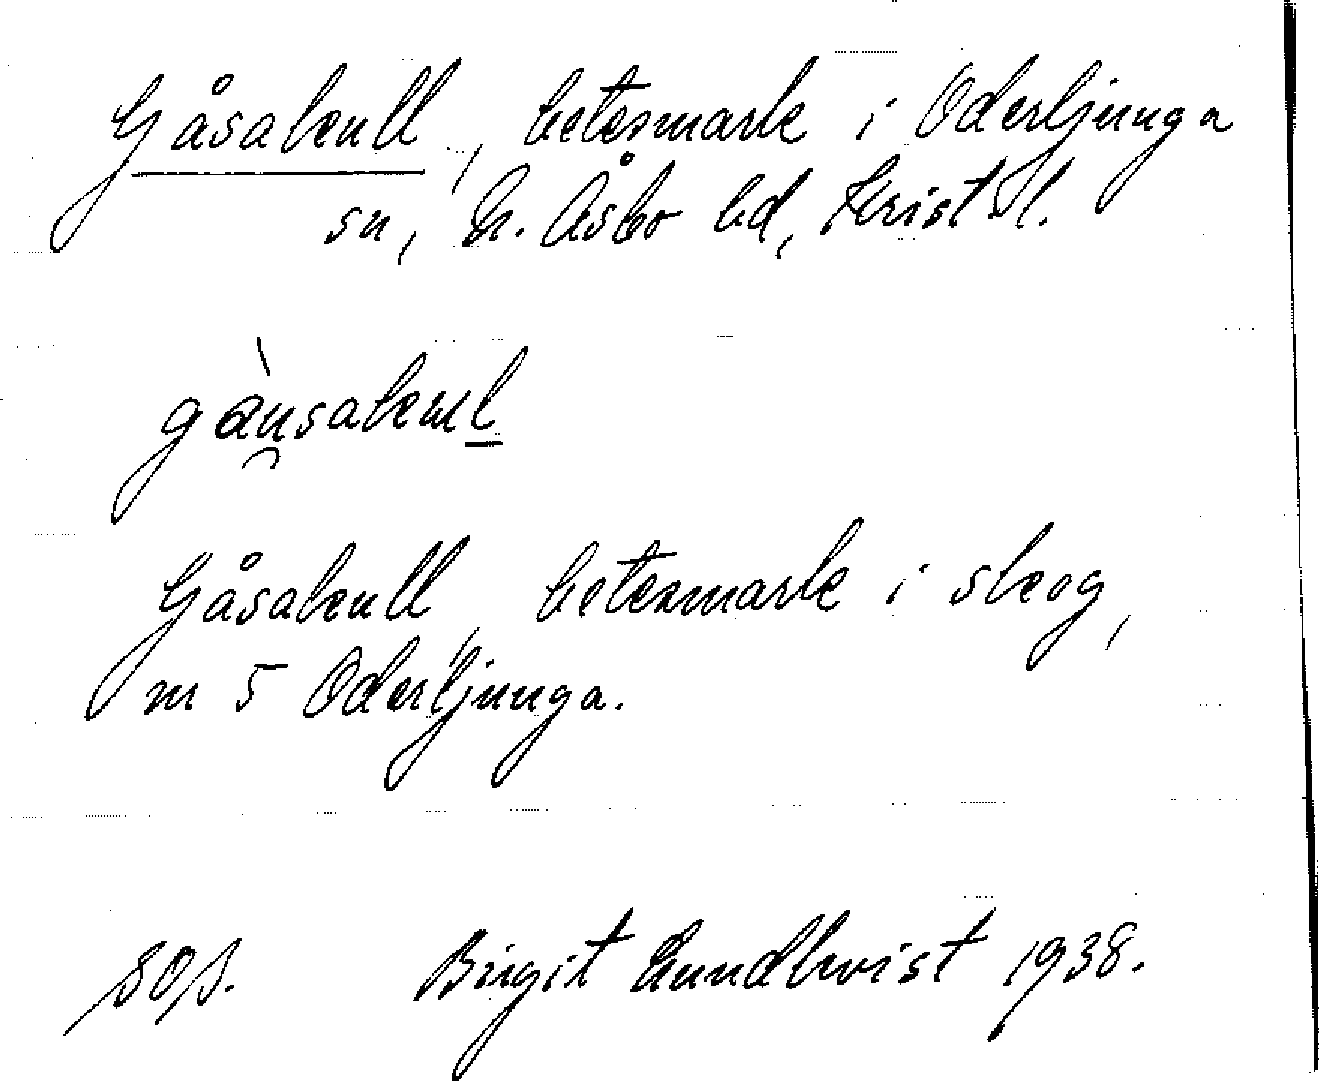 Gåsakull, betesmark i Oderljunga
sn, N. Åsbo hd, Krist. l.
gàu̯sakuḻ
Gåsakull, betesmark i skog,
nr 5 Oderljunga.
Birgit Lundkvist 1938.